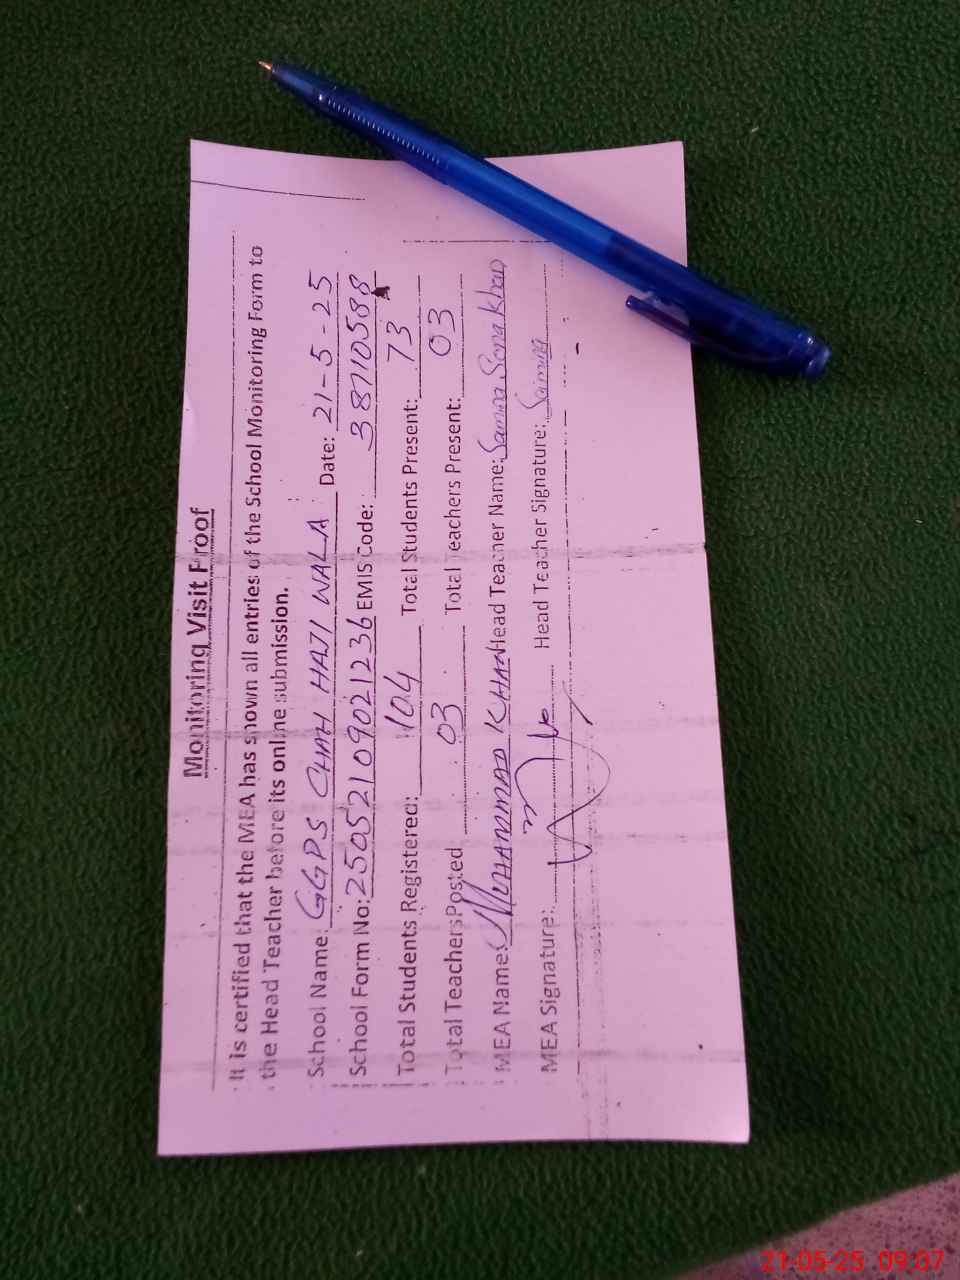 Monitoring Visit Proof
It is certified that the MEA has shown all entries of the School Monitoring Form to
the Head Teacher before its online submission.
School Name: GGPS CHAH HAJI WALA Date: 21-5-25
School Form No: 25052109021236 EMIS Code: 38710588
Total Students Registered: 104 Total Students Present: 73
Total Teachers Posted: 03 Total Teachers Present: 03
MEA Name: MUHAMMAD KHAN Head Teacher Name: Sona Khan
MEA Signature: Head Teacher Signature:
21-05-25 09:07